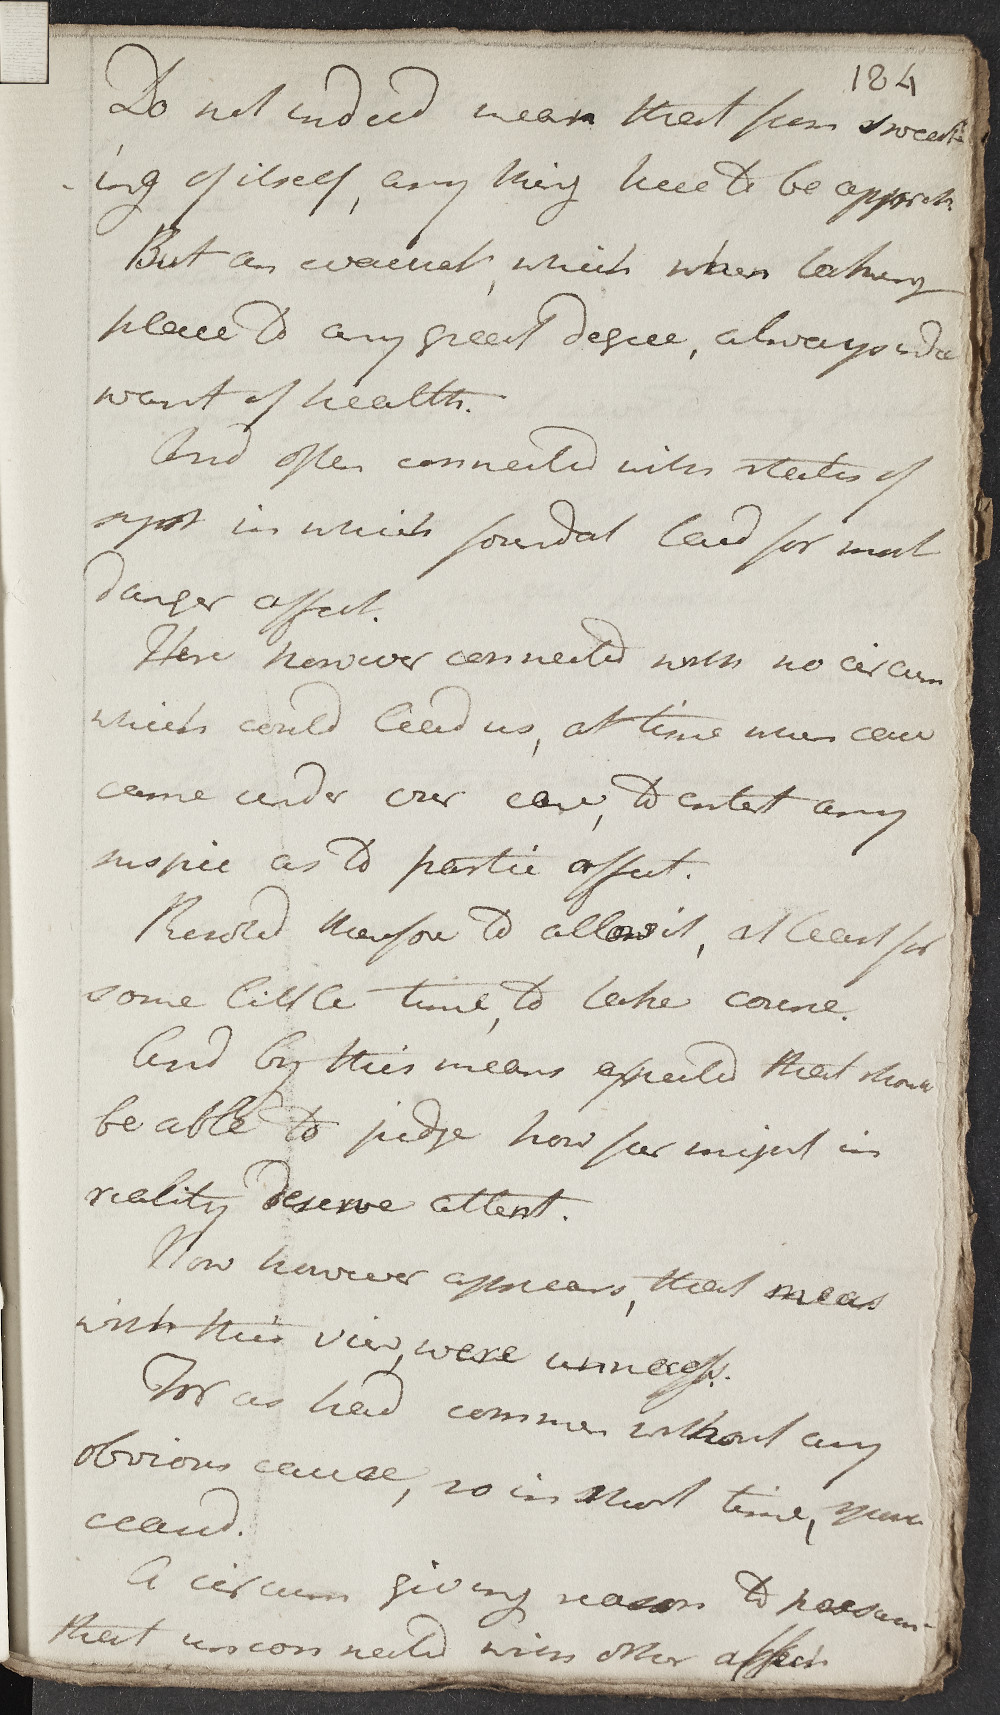 184
Do not indeed mean that from sweat-
ing of itself, any thing here to be appreh.
But an evacuat, which when taking
place to any great degree, always indic
want of health.
And often connected with states of
syst in which foundat laid for most
danger affect.
Here however connected with no circum
which could lead us, at time when case
came under our care, to entert any
suspic as to partic affect.
Resolvd therefore to allow it, at least for
some little time, to take course.
And by this means expected that should
be able to judge how far might in
reality deserve attent.
Now however appears, that meas
with this view, were unnecess.
For as had commen without any
obvious cause, so in short time, spon
ceasd.
A circum giving reason to presum
that unconnected with other affect